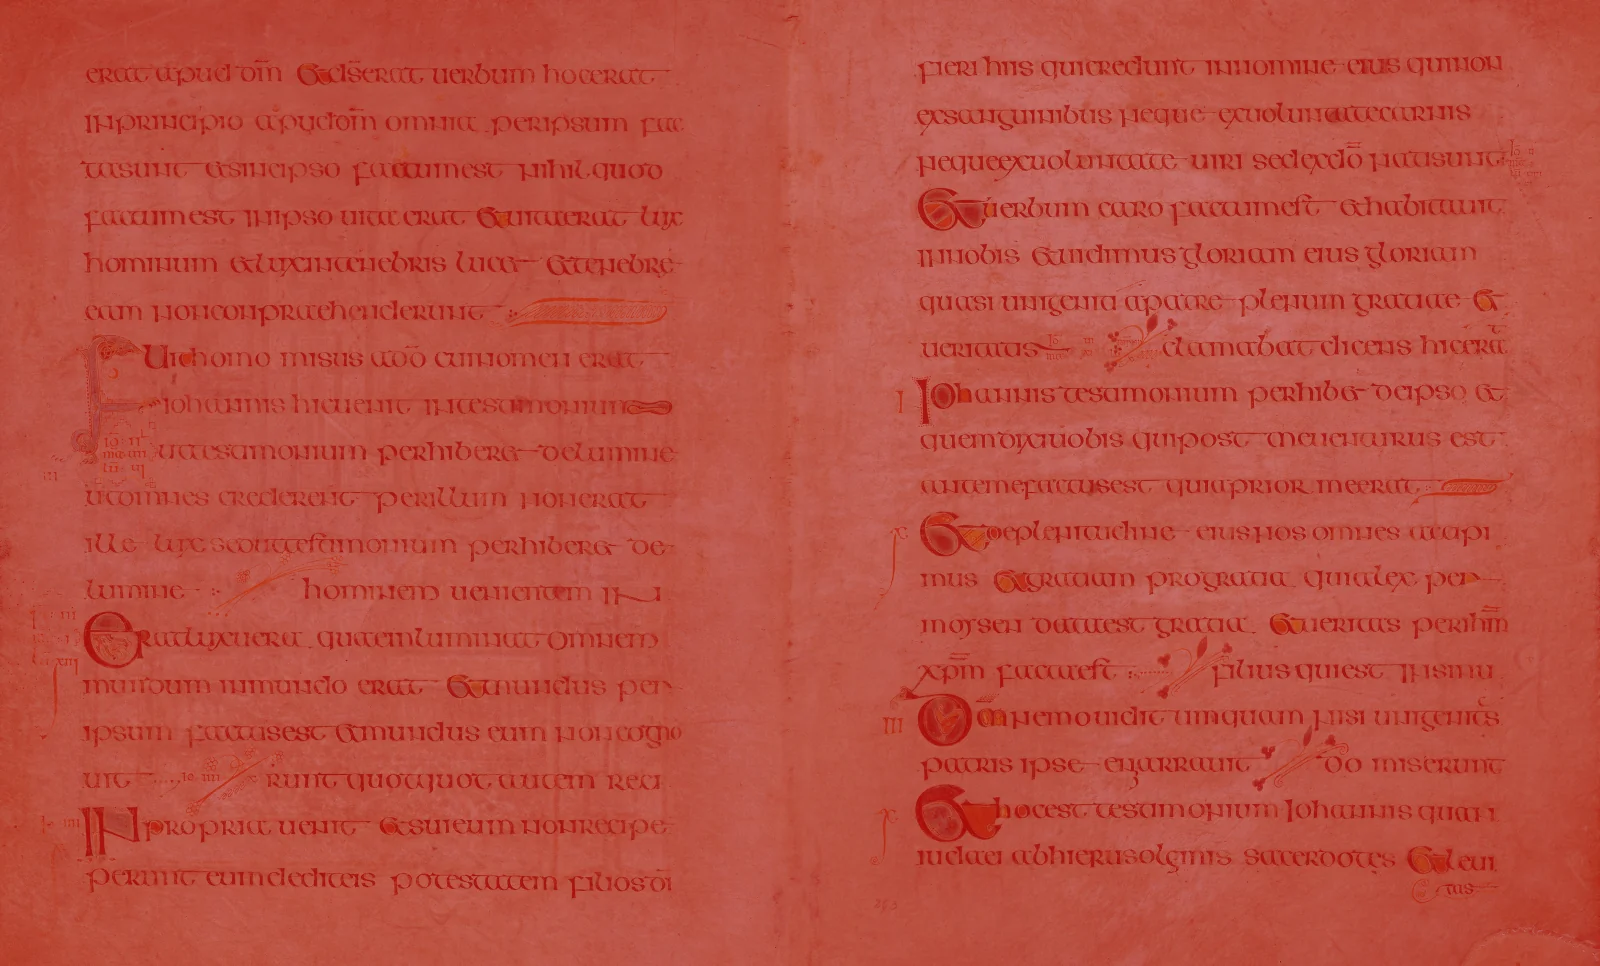 erat apud dm̄ & ds̄ erat uerbum hoc erat
in principio apud dm̄ omnia per ipsum fac
ta sunt & sine ipso factum est nihil quod
factum est in ipso uita erat & uita erat lux
hominum & lux in tenebris lucet & tenebre
eam non conpraehenderunt
Fuit homo misus a dō cui nomen erat
iohannis hic uenit in testimonium
ut testimonium perhiberet de lumine
ut omnes crederent per illum non erat
ille lux sed ut testimonium perhiber& de
lumine hominem uenientem in
Erat lux uera quae inluminat omnem
mundum in mundo erat & mundus per
ipsum factus est & mundus eum non cogno
uit runt quotquot autem reci
IN propria uenit & sui eum non recipe
perunt eum dedit eis potestatem filios dī
fieri hiis qui credunt in nomine eius qui non
ex sanguinibus neque ex uoluntate carnis
neque ex uoluntate uiri sed ex dō nati sunt
& uerbum caro factum est & habitauit
in nobis & uidimus gloriam eius gloriam
quasi unigeniti a patre plenum gratiae &
ueritatis clamabat dicens hic erat
Iohannis testimonium perhib& de ipso &
quem dixi uobis qui post me uenturus est
ante me factus est quia prior me erat
& de plenitudine eius nos omnes accipi
mus & gratiam pro gratia quia lex per
moysen data est gratia & ueritas per ihm̄
xpm̄ facta est filius qui est in sinu
Dm̄ nemo uidit umquam nisi unigenitus
patris ipse enarrauit do miserunt
& hoc est testimonium Iohannis quan
iudaei ab hierusolimis sacerdotes & leui
tas